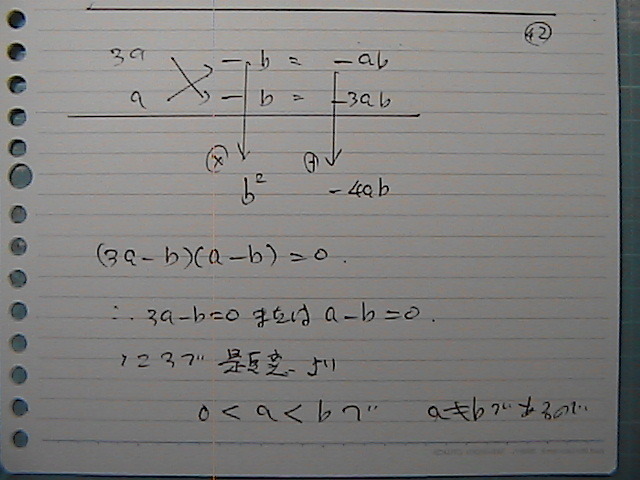 42
3a - b = -ab
a - b = -3ab
× +
b² -4ab
(3a-b)(a-b)=0.
∴ 3a-b=0 または a-b=0.
ここで 題意より
0<a<bで a≠bであるので